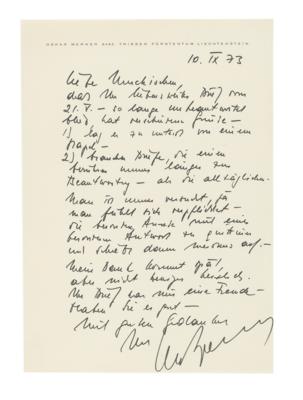 OSKAR WERNER 9495 TRIESEN FÜRSTENTUM LIECHTENSTEIN
10. IX 73
Liebe
dass Ihr liebenswerter Brief vom
21. V. – so lange unbeantwortet
blieb, hat verschiedene Gründe –
1) lag er zu unterst von einem
Stapel –
2) brauchen Briefe, die einen
berühren immer länger zur
Beantwortung – als die alltäglichen.
Man ist immer versucht, ja
man fühlt sich verpflichtet –
die besondere mit einer
besonderen Antwort zu quittieren
und schiebt dann auf –
Mein Dank kommt spät,
aber nicht weniger herzlich.
Ihr Brief war mir eine Freude –
haben Sie es gut –
Mit guten Gedanken
Ihr